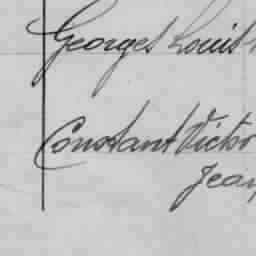 Georges Louis
Constant Victor
Jean